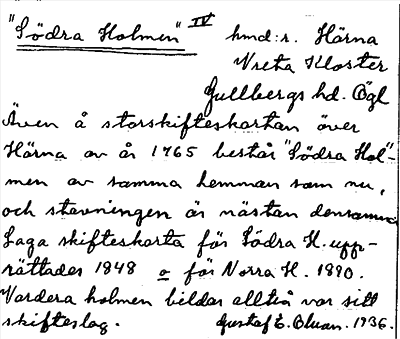 "Södra Holmen" IV hmd:r. Härna
Vreta Kloster
Gullbergs hd. Ögl
Även å storskifteskartan över
Härna av år 1765 består "Södra Hol"-
men av samma hemman som nu,
och stavningen är nästan densamma
Laga skifteskarta för Södra H. upp-
rättades 1848 o för Norra H. 1890.
Vardera holmen bildar alltså var sitt
skifteslag. Gustaf E. Olsson. 1936.